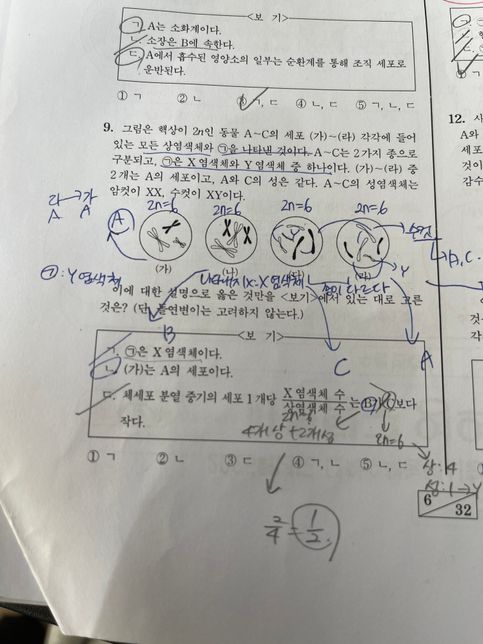 <보 기>
ㄱ. A는 소화계이다.
ㄴ. 소장은 B에 속한다.
ㄷ. A에서 흡수된 영양소의 일부는 순환계를 통해 조직 세포로
운반된다.
① ㄱ ② ㄴ ③ ㄱ, ㄷ ④ ㄴ, ㄷ ⑤ ㄱ, ㄴ, ㄷ
9. 그림은 핵상이 2n인 동물 A~C의 세포 (가)~(라) 각각에 들어
있는 모든 상염색체와 ㉠을 나타낸 것이다. A~C는 2가지 종으로
구분되고, ㉠은 X 염색체와 Y 염색체 중 하나이다. (가)~(라) 중
2개는 A의 세포이고, A와 C의 성은 같다. A~C의 성염색체는
암컷이 XX, 수컷이 XY이다.
라→가
A A
A
2n=6 2n=6 2n=6 2n=6
(가) (나) (다) (라)
Y
㉠: Y염색체
이에 대한 설명으로 옳은 것만을 <보기>에서 있는 대로 고른
것은? (단, 돌연변이는 고려하지 않는다.)
B
C
A
<보 기>
ㄱ. ㉠은 X 염색체이다.
ㄴ. (가)는 A의 세포이다.
ㄷ. 체세포 분열 중기의 세포 1개당 X 염색체 수/상염색체 수 는 B가 C보다
작다.
2n=6
4개 상+2개 성
2n=6
① ㄱ ② ㄴ ③ ㄷ ④ ㄱ, ㄴ ⑤ ㄴ, ㄷ
상: 4
성: 1→Y
2/4 = 1/2
6
32
12.
A와
세포
것이
감수